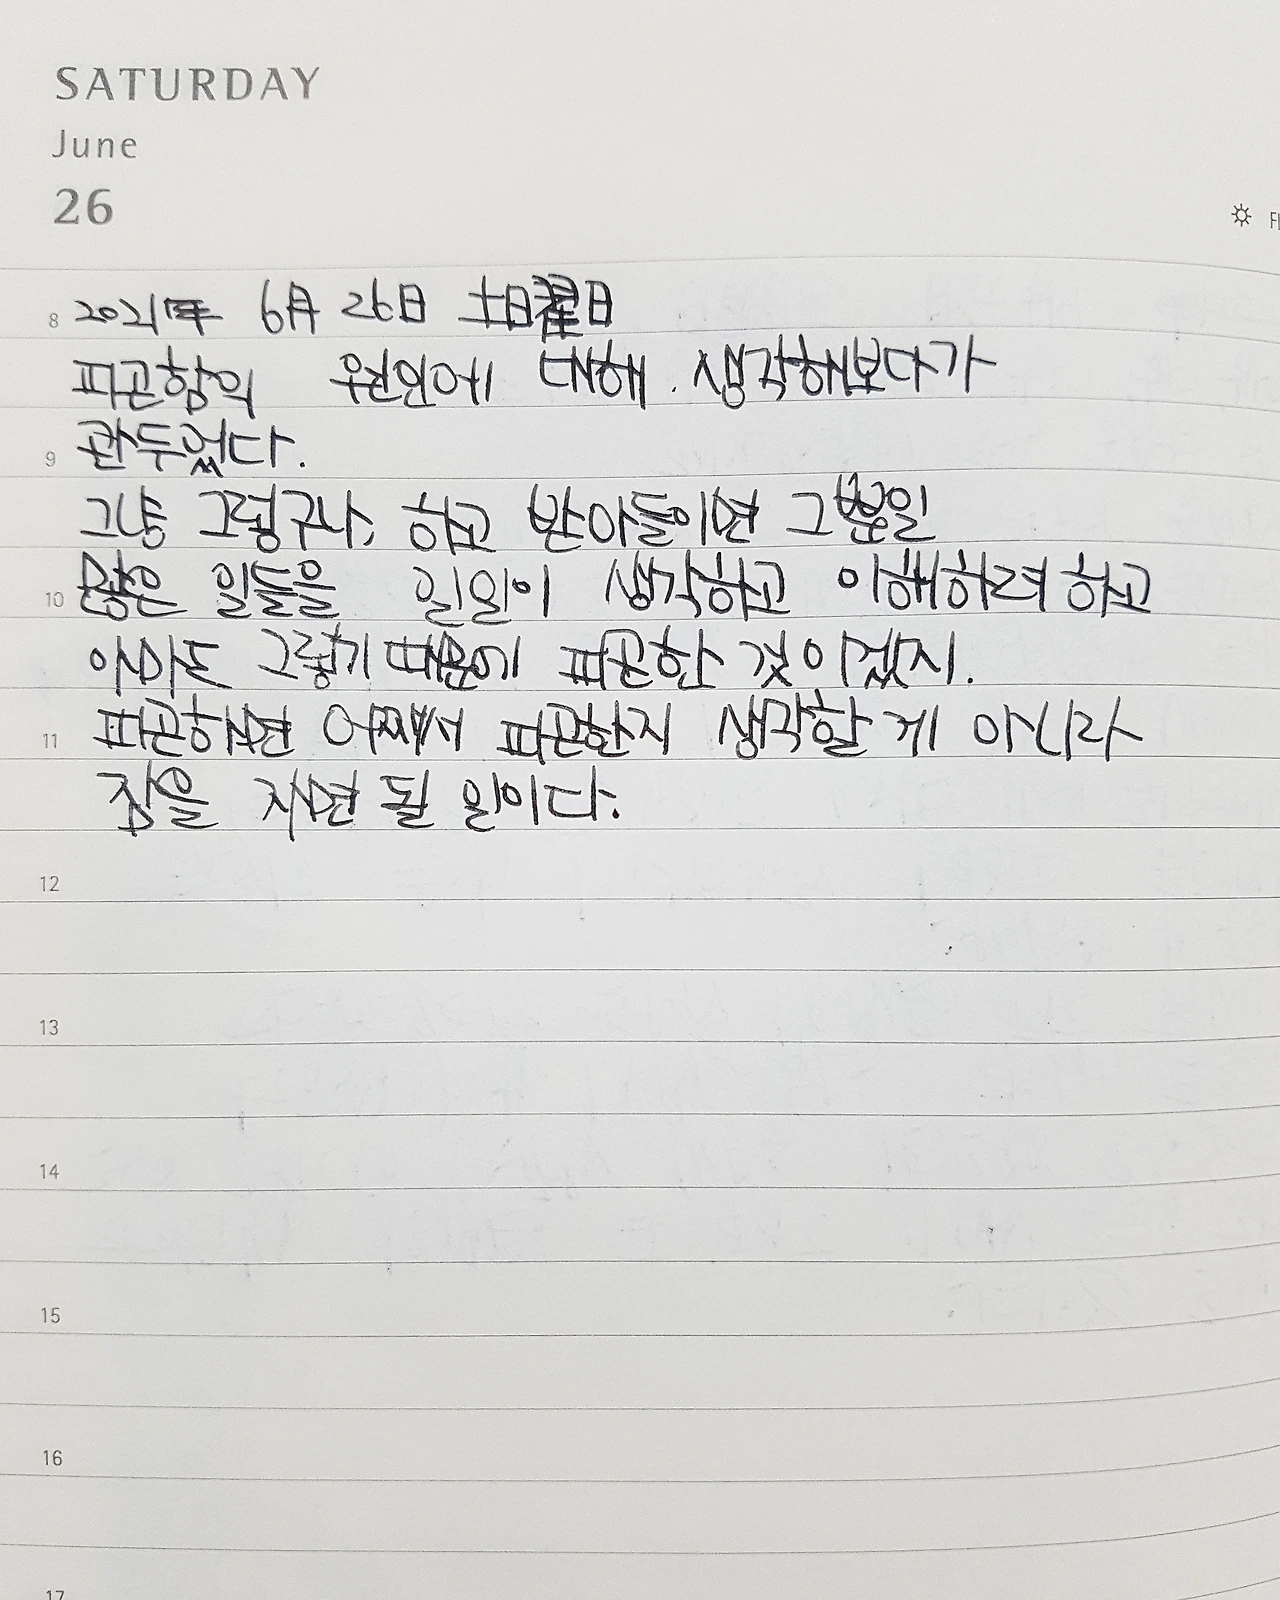 SATURDAY
June
26
8 2021年 6月 26日 土曜日
피곤함의 원인에 대해 생각해보다가
9 관두었다.
그냥 그렇구나, 하고 받아들이면 그뿐일
10 많은 일들을 일일이 생각하고 이해하려 하고
아마도 그렇기 때문에 피곤한 것이겠지.
11 피곤하면 어째서 피곤한지 생각할 게 아니라
잠을 자면 될 일이다.
12
13
14
15
16
17